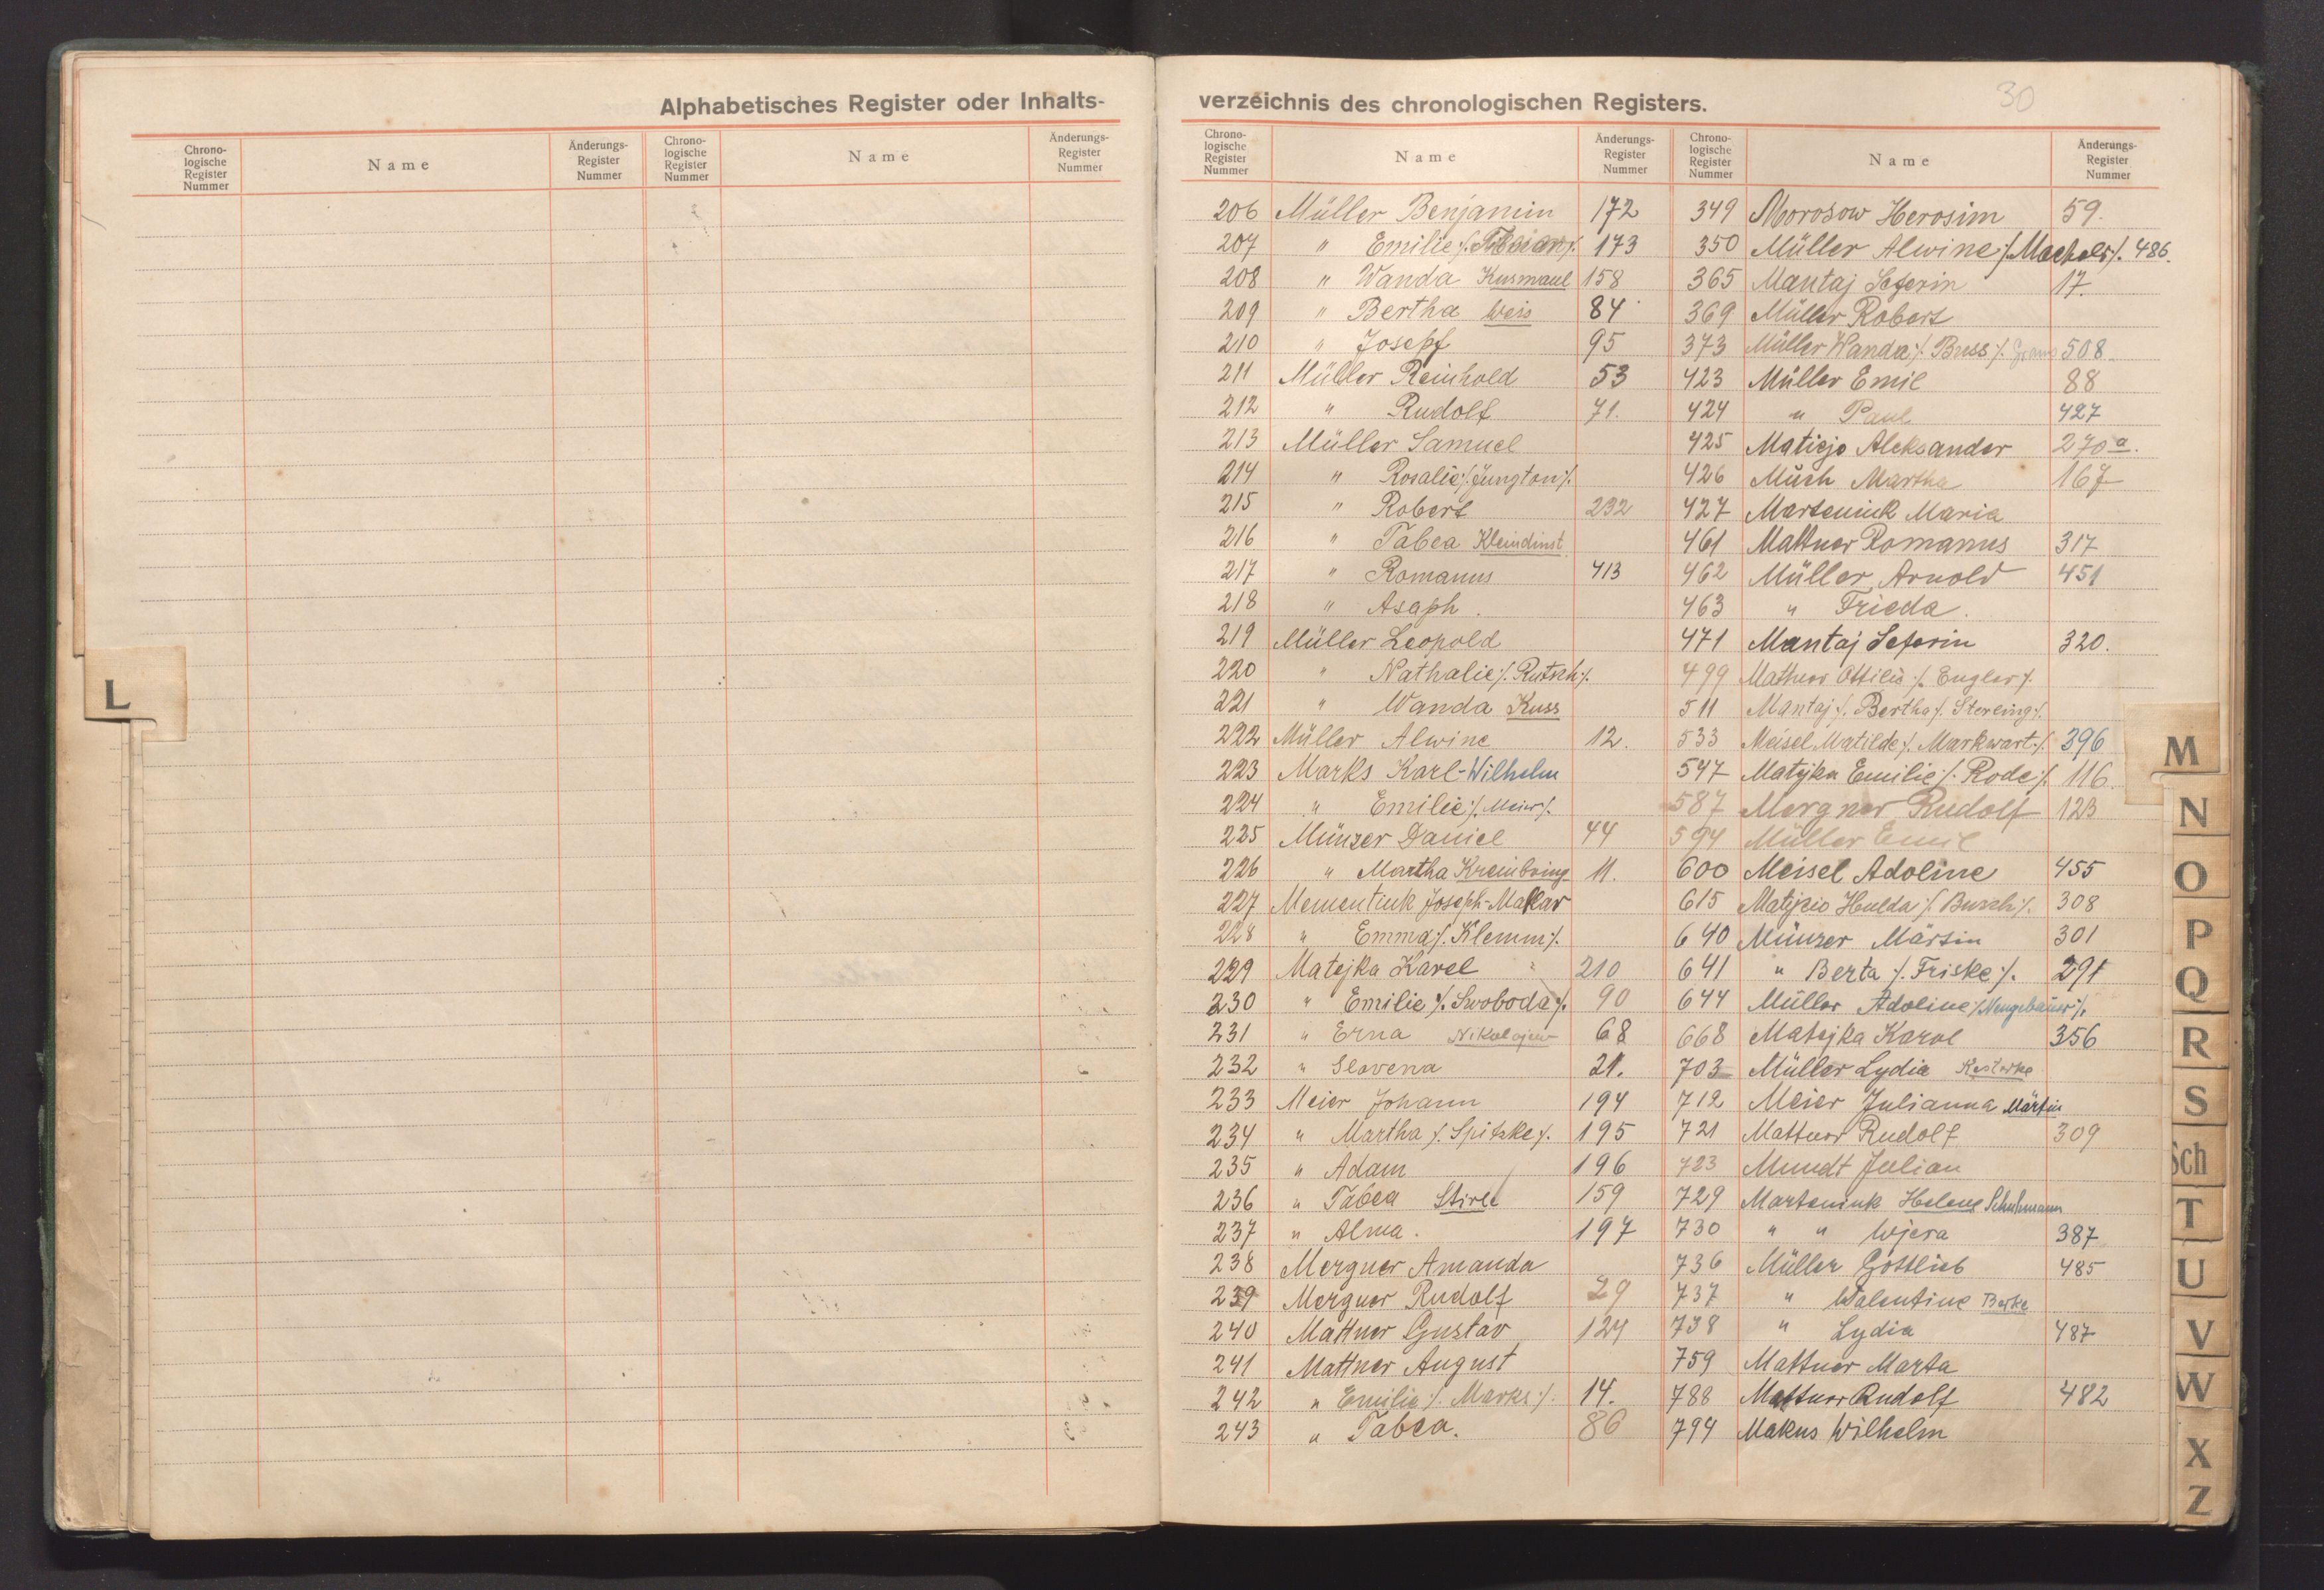 Alphabetisches Register oder Inhalts-
Chrono-
logische
Register
Nummer
Name
Änderungs-
Register
Nummer
Chrono-
logische
Register
Nummer
Name
Änderungs-
Register
Nummer
L
verzeichnis des chronologischen Registers.
30
Chrono-
logische
Register
Nummer
Name
Änderungs-
Register
Nummer
Chrono-
logische
Register
Nummer
Name
Änderungs-
Register
Nummer
206 Müller Benjamin 172
207 " Emilie 173
208 " Wanda Kusmaul 158
209 " Bertha Weis 84
210 " Josepf 95
211 Müller Reinhold 53
212 " Rudolf 71.
213 Müller Samuel
214 " Rosalie /:Jungton:/.
215 " Robert 232
216 " Tabea Kleindinst
217 " Romanus 413
218 " Asaph.
219 Müller Leopold
220 " Nathalie /:Rutsch:/.
221 " Wanda Kuss
222 Müller Alwine 12.
223 Marks Karl-Wilhelm
224 " Emilie /:Meier:/.
225 Münzer Daniel 44
226 " Martha Kreinbring 11.
227 Mementiuk Joseph-Makar
228 " Emma /:Klemm:/.
229 Matejka Karel 210
230 " Emilie /:Swoboda:/. 90
231 " Erna Nikolajew 68
232 " Slovena 21.
233 Meier Johann 194
234 " Martha /:Spitzke:/. 195
235 " Adam 196
236 " Tabea 159
237 " Alma. 197
238 Mergner Amanda
239 Mergner Rudolf 29
240 Mattner Gustav 124
241 Mattner August
242 " Emilie /:Marks:/. 14.
243 " Tabea. 86
349 Morosow Herosim 59.
350 Müller Alwine 486.
365 Mantaj Seferin 17.
369 Müller Robert
373 Müller Wanda /:Buss:/. 508
423 Müller Emil 88
424 " Paul 427
425 Matiejo Aleksander 270a.
426 Müch Martha 167
427 Marteniuk Maria
461 Mattner Romanus 317
462 Müller Arnold 451
463 " Frieda.
471 Mantaj Seferin 320.
499 Mattner Ottilie /:Engler:/.
511 Mantaj /:Bertha:/. Sterling:/.
533 Meisel Matilde /:Markwart:/. 396
547 Matejka Emilie /:Rode:/. 116.
587 Mergner Rudolf 123
594 Müller Emil
600 Meisel Adoline 455
615 Hulda /:Busch:/. 308
640 Münzer Märtin 301
641 " Berta /:Friske:/. 291
644 Müller Adoline /:Neugebauer:/.
668 Matejka Karol 356
703 Müller Lydia
712 Meier Julianna Märtin
721 Mattner Rudolf 309
723 Mundt Julian
729 Marteniuk Helene Schuhmann
730 " " Wjera 387
736 Müller Gottlieb 485
737 " Walentine Berke
738 " Lydia 487
759 Mattner Marta
788 Mattner Rudolf 482
794 Makus Wilhelm
M
N
O
P
Q
R
S
Sch
T
U
V
W
X
Z